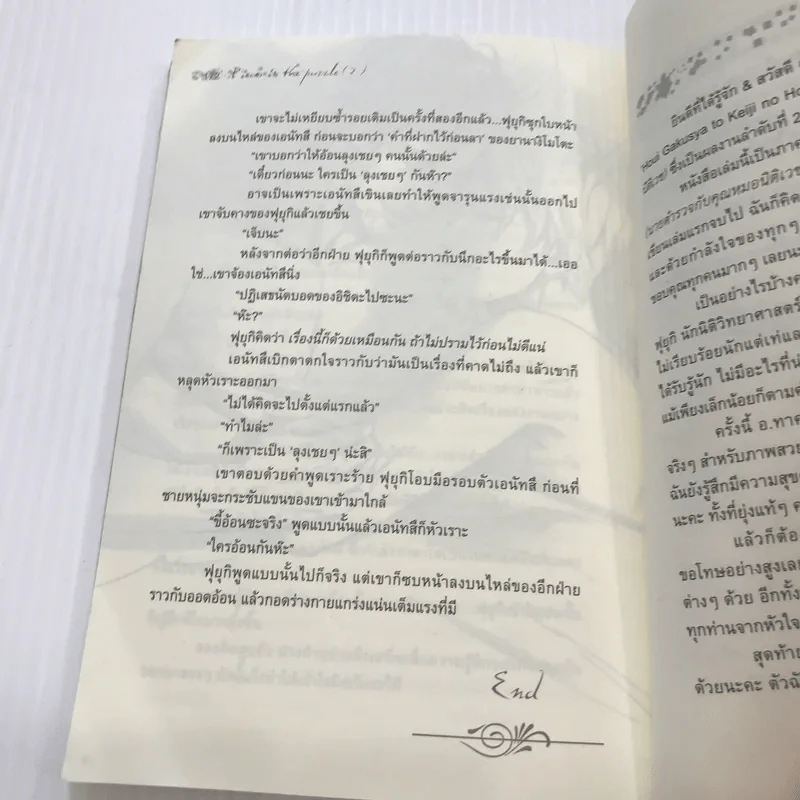 the puzzle (2)
เขาจะไม่เหยียบซ้ำรอยเดิมเป็นครั้งที่สองอีกแล้ว...ฟุยุกิซุกใบหน้า
ลงบนไหล่ของเอนัทสึ ก่อนจะบอกว่า ‘คำที่ฝากไว้ก่อนลา’ ของยานางิโมโตะ
“เขาบอกว่าให้อ้อนลุงเชยๆ คนนั้นด้วยล่ะ”
“เดี๋ยวก่อนนะ ใครเป็น ‘ลุงเชยๆ’ กันห๊า?”
อาจเป็นเพราะเอนัทสึเขินเลยทำให้พูดจารุนแรงเช่นนั้นออกไป
เขาจับคางของฟุยุกิแล้วเชยขึ้น
“เจ็บนะ”
หลังจากต่อว่าอีกฝ่าย ฟุยุกิก็พูดต่อราวกับนึกอะไรขึ้นมาได้...เออ
ใช่...เขาจ้องเอนัทสึนิ่ง
“ปฏิเสธนัดบอดของอิชิดะไปซะนะ”
“ห๊ะ?”
ฟุยุกิคิดว่า เรื่องนี้ก็ด้วยเหมือนกัน ถ้าไม่ปรามไว้ก่อนไม่ดีแน่
เอนัทสึเบิกตาตกใจราวกับว่ามันเป็นเรื่องที่คาดไม่ถึง แล้วเขาก็
หลุดหัวเราะออกมา
“ไม่ได้คิดจะไปตั้งแต่แรกแล้ว”
“ทำไมล่ะ”
“ก็เพราะเป็น ‘ลุงเชยๆ’ น่ะสิ”
เขาตอบด้วยคำพูดเราะร้าย ฟุยุกิโอบมือรอบตัวเอนัทสึ ก่อนที่
ชายหนุ่มจะกระชับแขนของเขาเข้ามาใกล้
“ขี้อ้อนซะจริง” พูดแบบนั้นแล้วเอนัทสึก็หัวเราะ
“ใครอ้อนกันห๊ะ”
ฟุยุกิพูดแบบนั้นไปก็จริง แต่เขาก็ซบหน้าลงบนไหล่ของอีกฝ่าย
ราวกับออดอ้อน แล้วกอดร่างกายแกร่งแน่นเต็มแรงที่มี
End
ยินดีที่ได้รู้จัก & สวัสดี
‘Houi Gakusya to Keiji no Hou
นิติเวช) ซึ่งเป็นผลงานลำดับที่ 2
หนังสือเล่มนี้เป็นภาค
(นายตำรวจกับคุณหมอนิติเวช
เขียนเล่มแรกจบไป ฉันก็คิด
และด้วยกำลังใจของทุกๆ
ขอบคุณทุกคนมากๆ เลยนะ
เป็นอย่างไรบ้างค
ฟุยุกิ นักนิติวิทยาศาสตร์
ไม่เรียบร้อยนักแต่เท่แล
ได้รับรู้นัก ไม่มีอะไรที่น่
แม้เพียงเล็กน้อยก็ตามค
ครั้งนี้ อ.ทาค
จริงๆ สำหรับภาพสวย
ฉันยังรู้สึกมีความสุขข
นะคะ ทั้งที่ยุ่งแท้ๆ ค
แล้วก็ต้อ
ขอโทษอย่างสูงเลย
ต่างๆ ด้วย อีกทั้ง
ทุกท่านจากหัวใจ
สุดท้าย
ด้วยนะคะ ตัวฉั